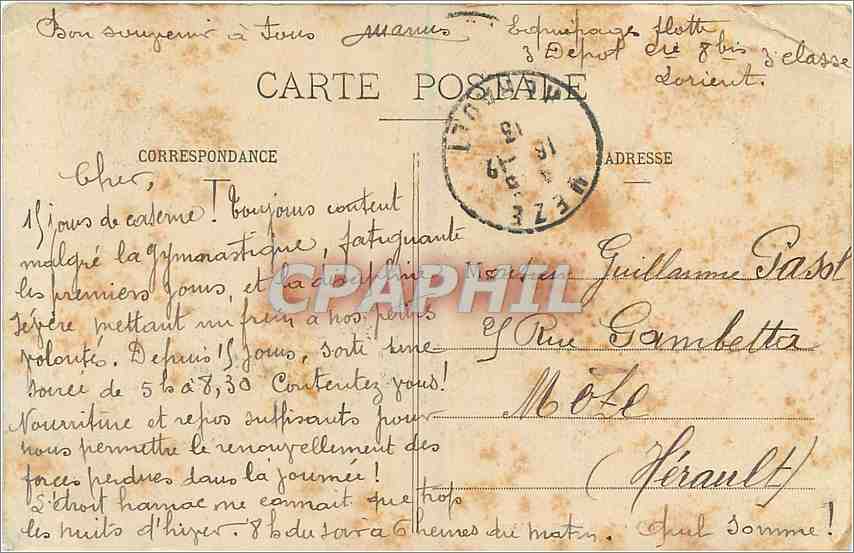 Bon souvenir à Tous Marius Equipages flotte
3 Depot Cie 8 bis 3 classe
Lorient.
CARTE POSTALE
CORRESPONDANCE
ADRESSE
MEZE
HERAULT
Cher,
15 jours de caserne! Toujours content
malgré la gymnastique, fatiguante
les premiers jours, et la discipline
sévère mettant un frein à nos petites
volontés. Depuis 15 jours, sorti une
soirée de 5h à 8,30 Contentez vous!
Nourriture et repos suffisants pour
nous permettre le renouvellement des
forces perdues dans la journée!
L'étroit hamac me connait que trop
les nuits d'hiver. 8h du soir à 6 heures du matin. Quel somme!
Monsieur Guillaume
Rue Gambetta
Mèze
(Hérault)
CPAPHIL